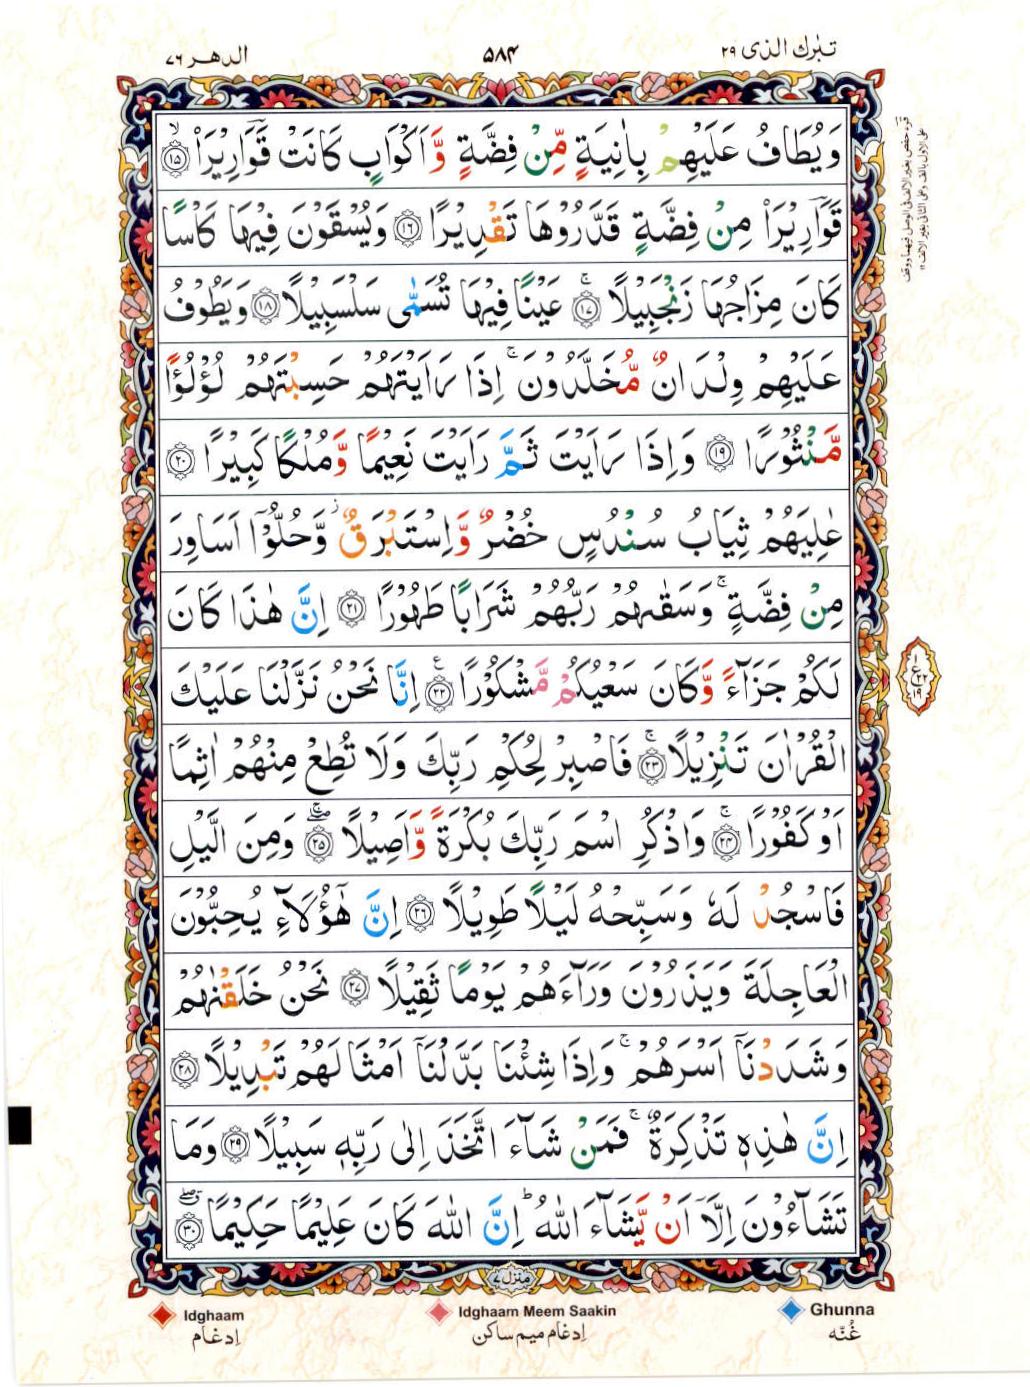 تبٰرك الذى ٢٩
٥٨٤
الدهر ٧٦
وَيُطَافُ عَلَيْهِمْ بِاٰنِيَةٍ مِّنْ فِضَّةٍ وَّاَكْوَابٍ كَانَتْ قَوَارِيْرَا۟ ۙ‏﴿١٥﴾
قَوَارِيْرَا۟ مِنْ فِضَّةٍ قَدَّرُوْهَا تَقْدِيْرًا ﴿١٦﴾ وَيُسْقَوْنَ فِيْهَا كَاْسًا
كَانَ مِزَاجُهَا زَنْجَبِيْلًا ۚ ﴿١٧﴾ عَيْنًا فِيْهَا تُسَمّٰى سَلْسَبِيْلًا ﴿١٨﴾ وَيَطُوْفُ
عَلَيْهِمْ وِلْدَانٌ مُّخَلَّدُوْنَ ۚ اِذَا رَاَيْتَهُمْ حَسِبْتَهُمْ لُؤْلُؤًا
مَّنْثُوْرًا ﴿١٩﴾ وَاِذَا رَاَيْتَ ثَمَّ رَاَيْتَ نَعِيْمًا وَّمُلْكًا كَبِيْرًا ﴿٢٠﴾
عٰلِيَهُمْ ثِيَابُ سُنْدُسٍ خُضْرٌ وَّاِسْتَبْرَقٌ ۫ وَّحُلُّوْۤا اَسَاوِرَ
مِنْ فِضَّةٍ ۚ وَسَقٰىهُمْ رَبُّهُمْ شَرَابًا طَهُوْرًا ﴿٢١﴾ اِنَّ هٰذَا كَانَ
لَكُمْ جَزَآءً وَّكَانَ سَعْيُكُمْ مَّشْكُوْرًا ﴿٢٢﴾ اِنَّا نَحْنُ نَزَّلْنَا عَلَيْكَ
الْقُرْاٰنَ تَنْزِيْلًا ۚ ﴿٢٣﴾ فَاصْبِرْ لِحُكْمِ رَبِّكَ وَلَا تُطِعْ مِنْهُمْ اٰثِمًا
اَوْ كَفُوْرًا ۚ ﴿٢٤﴾ وَاذْكُرِ اسْمَ رَبِّكَ بُكْرَةً وَّاَصِيْلًا ۖۚ ﴿٢٥﴾ وَمِنَ الَّيْلِ
فَاسْجُدْ لَهٗ وَسَبِّحْهُ لَيْلًا طَوِيْلًا ﴿٢٦﴾ اِنَّ هٰۤؤُلَآءِ يُحِبُّوْنَ
الْعَاجِلَةَ وَيَذَرُوْنَ وَرَآءَهُمْ يَوْمًا ثَقِيْلًا ﴿٢٧﴾ نَحْنُ خَلَقْنٰهُمْ
وَشَدَدْنَاۤ اَسْرَهُمْ ۚ وَاِذَا شِئْنَا بَدَّلْنَاۤ اَمْثَالَهُمْ تَبْدِيْلًا ﴿٢٨﴾
اِنَّ هٰذِهٖ تَذْكِرَةٌ ۚ فَمَنْ شَآءَ اتَّخَذَ اِلٰى رَبِّهٖ سَبِيْلًا ﴿٢٩﴾ وَمَا
تَشَآءُوْنَ اِلَّاۤ اَنْ يَّشَآءَ اللّٰهُ ؕ اِنَّ اللّٰهَ كَانَ عَلِيْمًا حَكِيْمًا ۖ ﴿٣٠﴾
منزل ٧
Ghunna
غُنّه
Idghaam Meem Saakin
إدغام ميم ساكن
Idghaam
إدغام